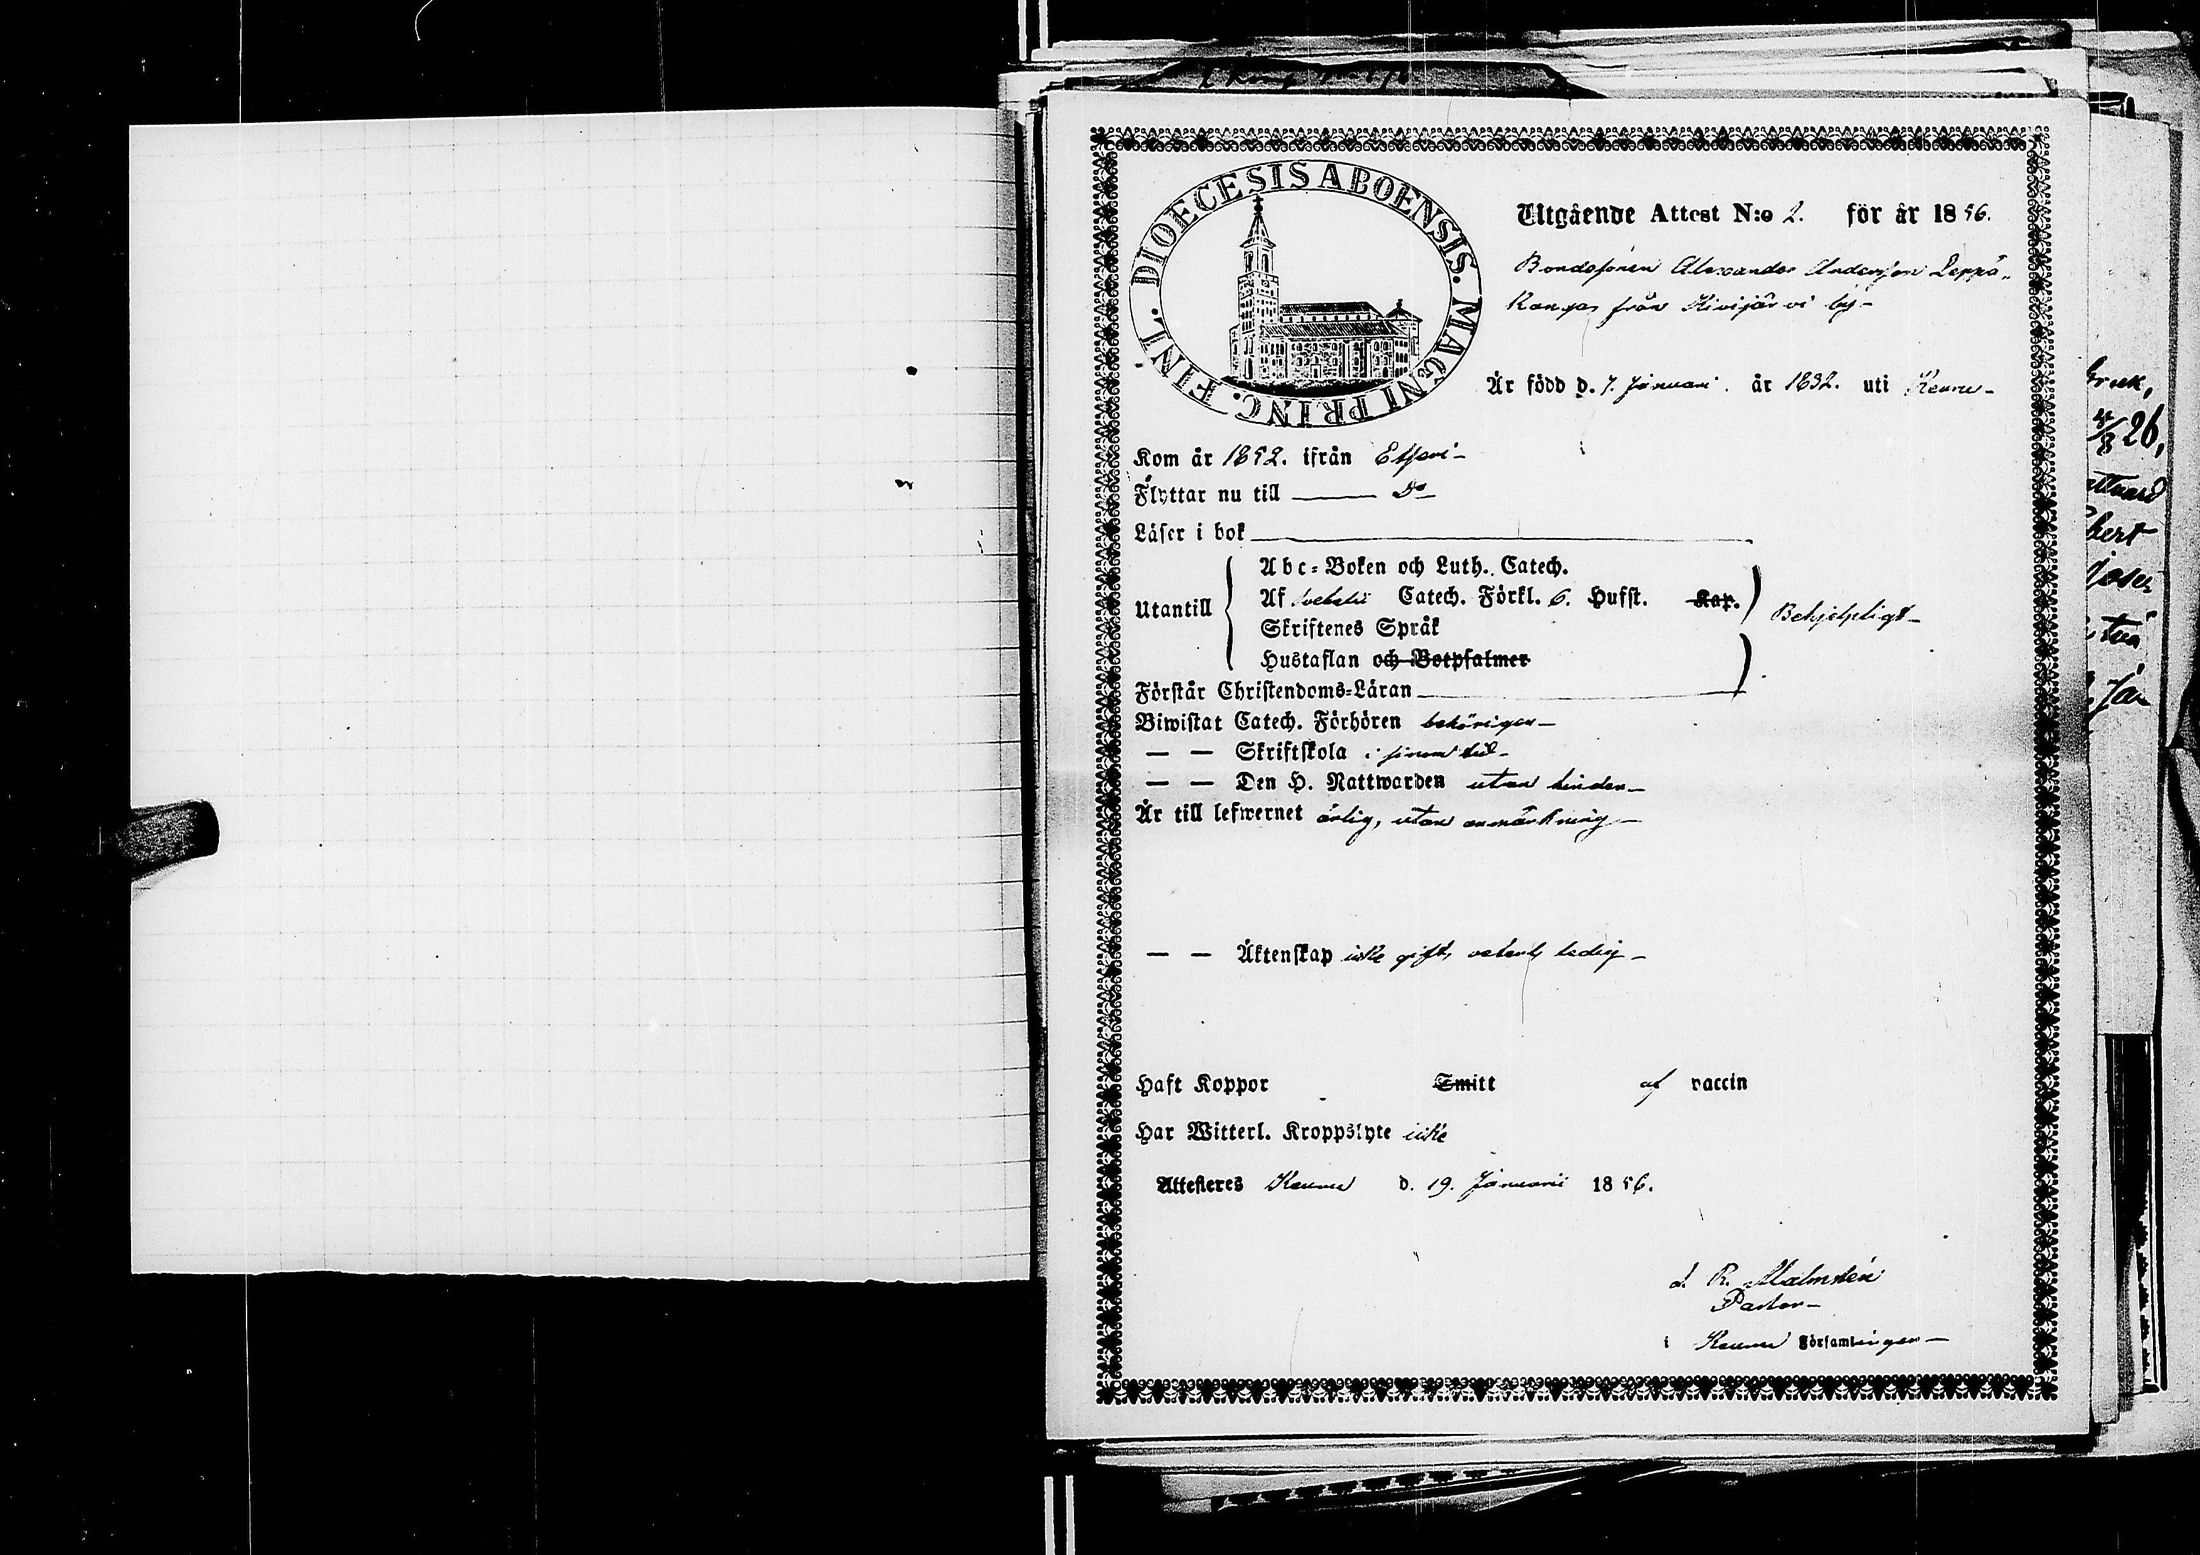 DIOECESIS ABOENSIS. MAGNI PRINC. FINL.
Utgående Attest N:o 2. för år 1856.
Bondesonen Alexander Andersson Leppä-
kangas från Kivijärvi by-
Är född d. 7. Januari. år 1832. uti Keuru-
Kom år 1852. ifrån Etseri-
Flyttar nu till Do-
Läser i bok
Utantill
Abc-Boken och Luth. Catech.
Af Svebelii Catech. Förkl. 6. Hufst. Kap.
Skriftenes Språk
Hustaflan och Botpsalmer
Behjelpligt-
Förstår Christendoms-Läran
Biwistat Catech. Förhören behörigen-
— — Skriftskola i sinom tid-
— — Den H. Nattwarden utan hinder-
Är till lefwernet ärlig, utan anmärkning-
— — Äktenskap icke gift, ledig-
Haft Koppor Smitt af vaccin
Har Witterl. Kroppslyte icke
Attesteres Keuru d. 19. Januarii 1856.
R. Malmstén
Pastor-
i Keuru Församlingen-
26,